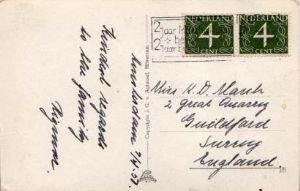 NEDERLAND
NEDERLAND
4
4
CENT
CENT
2
2
Kindest regards
to the family
Amsterdam
Miss K. D. Marsh
2 great Quarry
Guildford
Surrey
England
Copyright J. G. v. Agtmaal, Hilversum